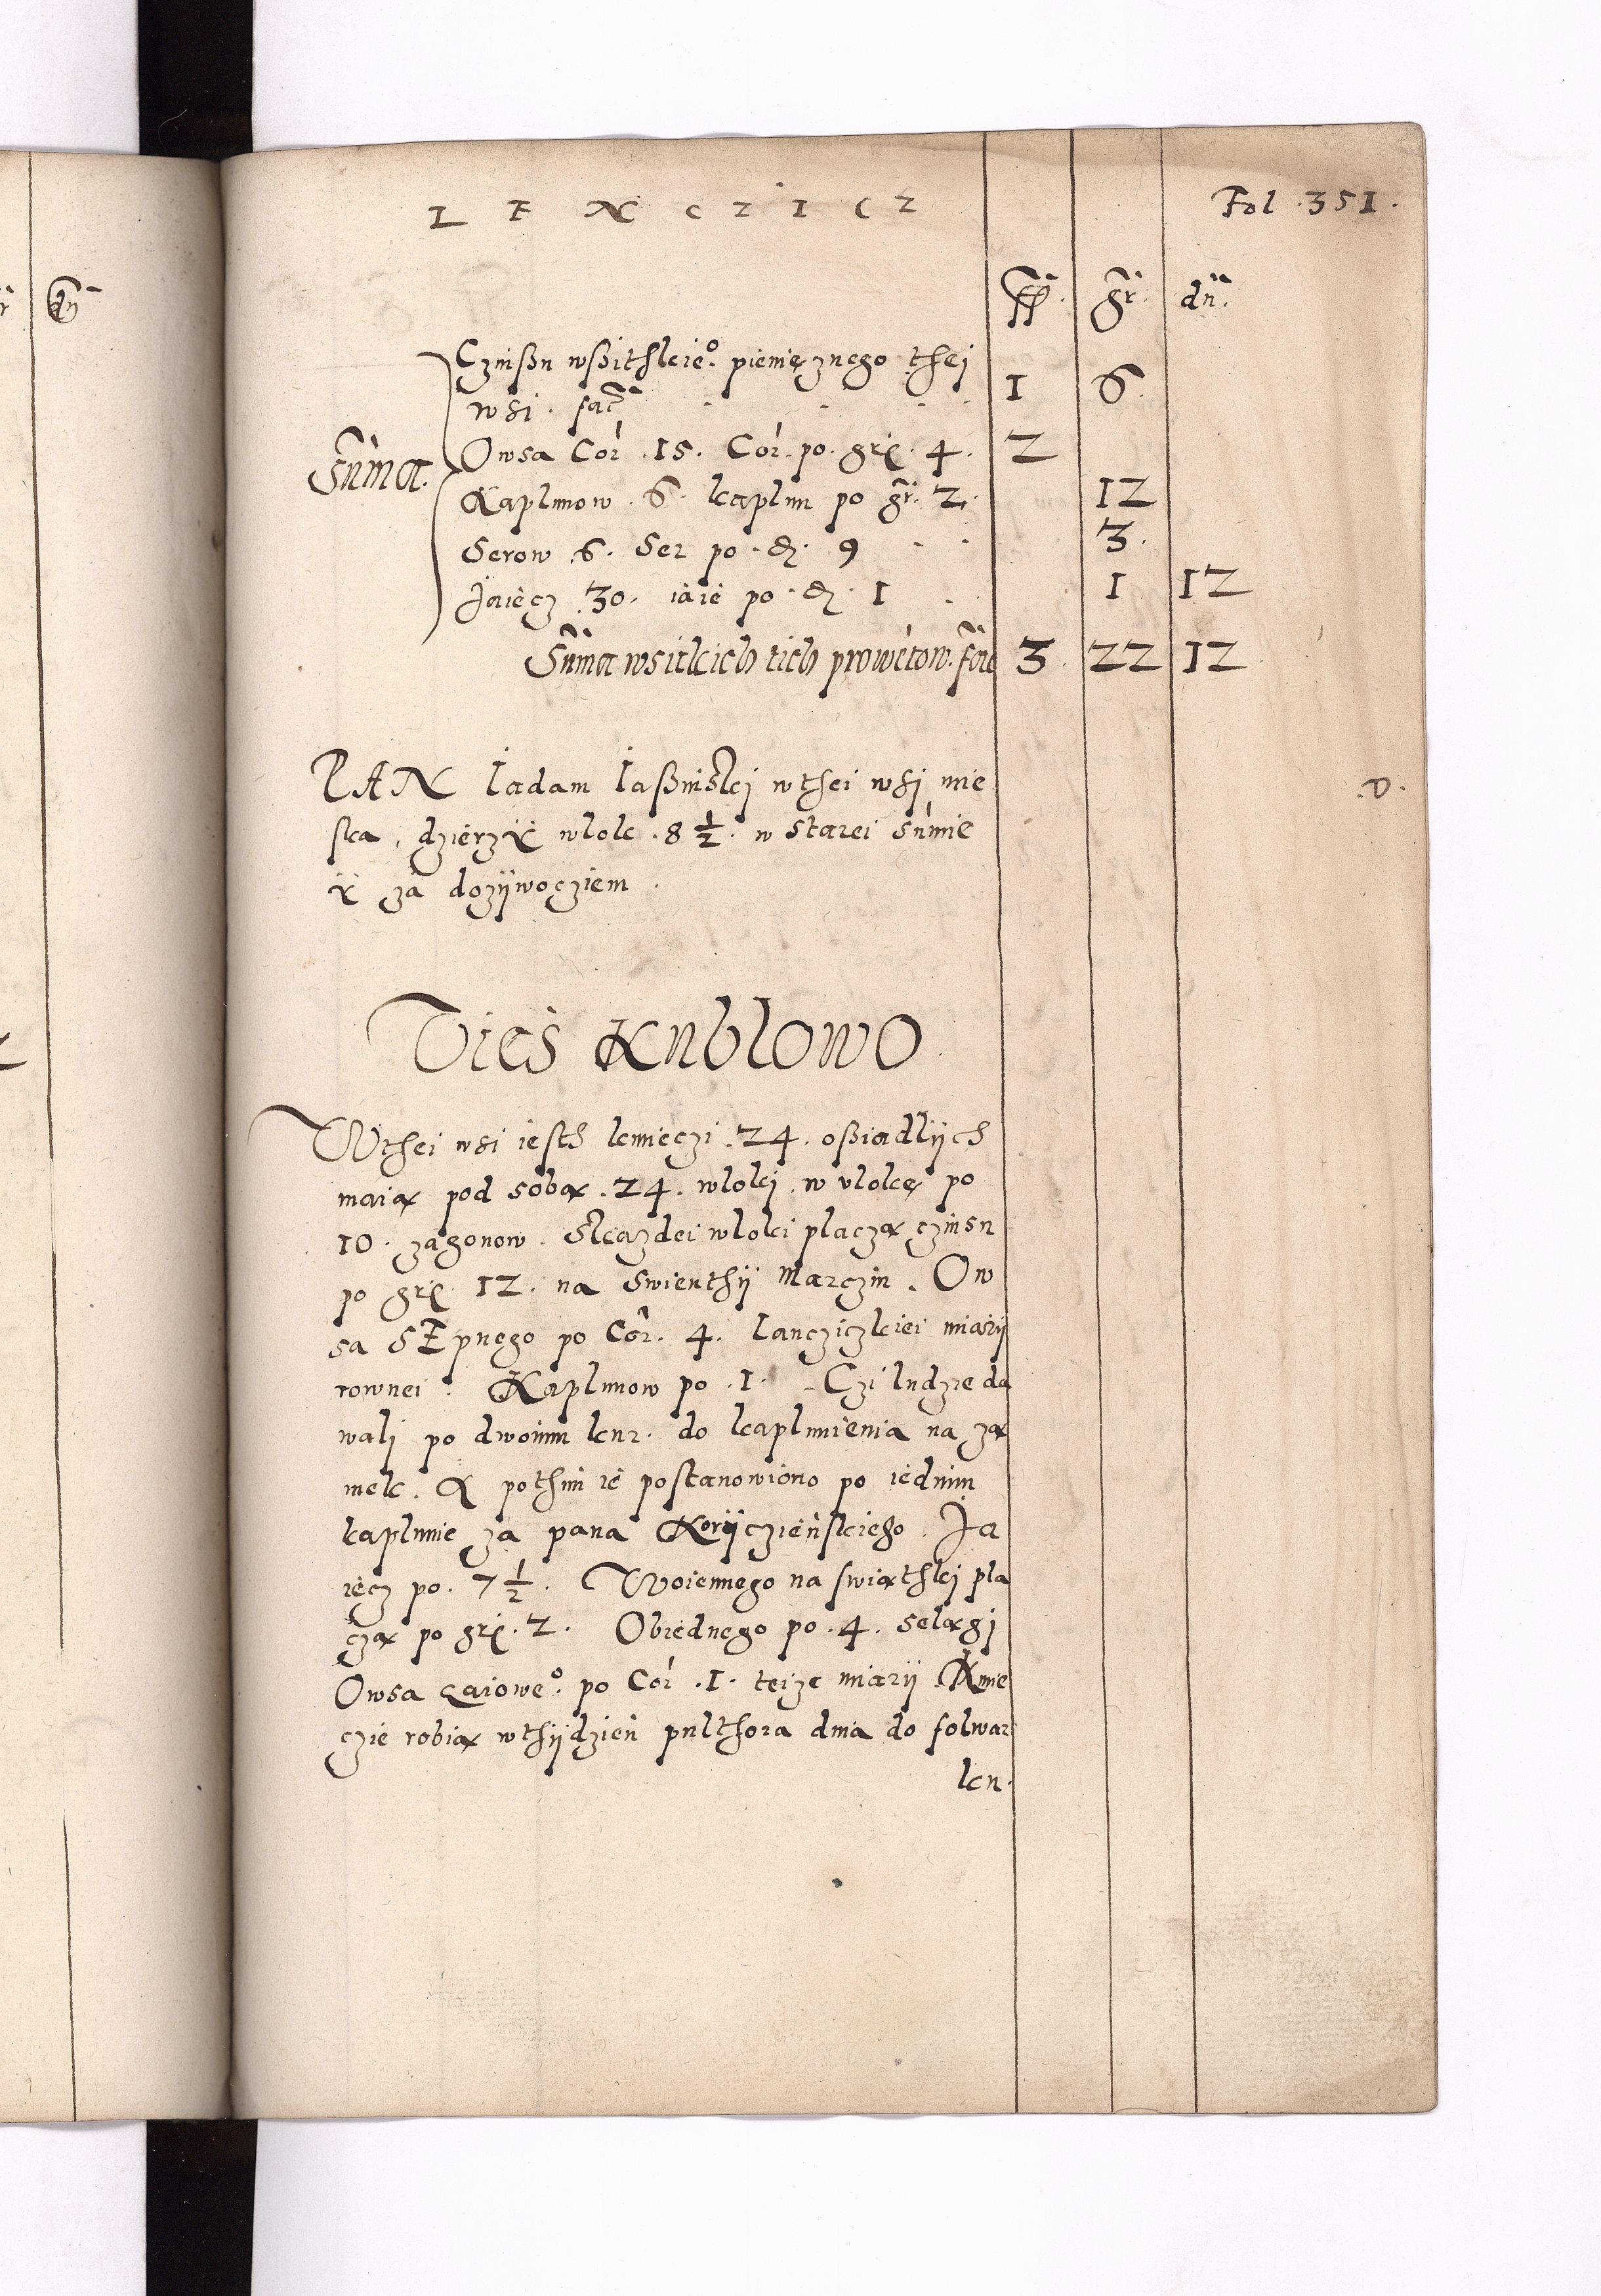 LENCZICZ
Fol 351.
ff. gr. dn.
Czinßu wßithkie°. pieniężnego thei
wsi. fac 1 6
Suma.
Owsa Cor. 15. Cor. po. gr. 4. 2
Kaplunow. 6. kaplun po gr. 2. 12
Serow 6. Ser po. d. 9 3.
Jaiecz 30. iaie po. d. 1 1 12
Suma wsitkich tich prowetow. fac 3. 22 12
PAN Iadam Iaßinskj wthei wsj mie
ska, dzierzy wlok. 8 1/2. w starei sumie
y za dozijwocziem.
D.
Vieś Kublowo
Wthei wsi iesth kmieczi. 24. oßiadlijch
maią pod sobą. 24. wlokj. w vlokę po
10. zagonow. Skazdei wloki placzą czinsu
po gr. 12. na swienthij Marczin. Ow
sa SEpnego po Cor. 4. lancziczkiei miarij
rownei. Kaplunow po. 1. Czi ludzie da
walj po dwoium kur. do kaplunienia na zą
mek. A pothim ie postanowiono po iednim
kaplunie za pana Korijczieńskiego. Ja
iecz po. 7 1/2. Woiennego na swiąthkj pla
czą po gr. 2. Obiednego po. 4. selągj
Owsa gaiowe°. po Cor. 1. teize miarij. Kmie
czie robią wthijdzień pulthora dnia do folwar
ku.